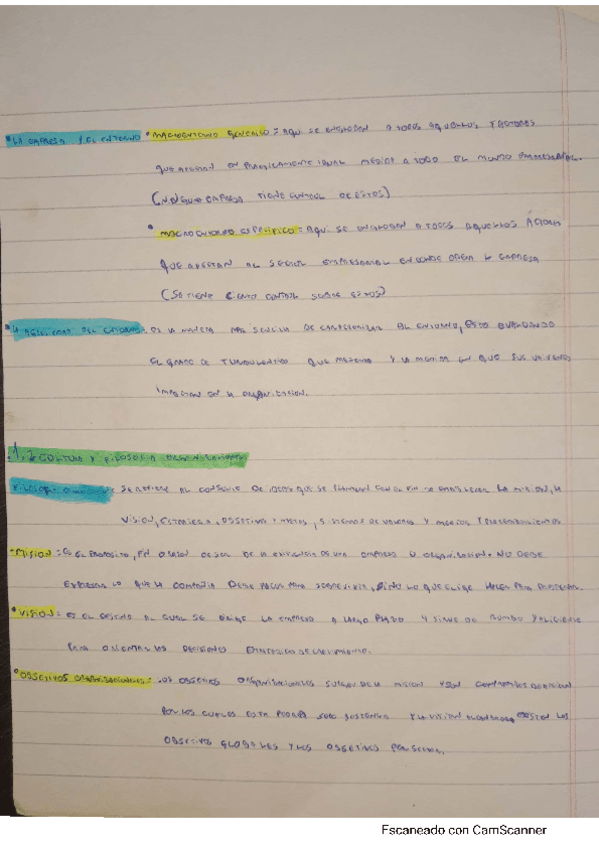 • LA EMPRESA Y EL ENTORNO • MACROENTORNO GENERICO = AQUI SE ENGLOBAN A TODOS AQUELLOS FACTORES
QUE AFECTAN EN PRACTICAMENTE IGUAL MEDIDA A TODO EL MUNDO EMPRESARIAL.
(NINGUNA EMPRESA TIENE CONTROL DE ESTOS)
• MACROENTORNO ESPECIFICO = AQUI SE ENGLOBAN A TODOS AQUELLOS
QUE AFECTAN AL SECTOR EMPRESARIAL EN DONDE OPERA LA EMPRESA
(SE TIENE CIERTO CONTROL SOBRE ESTOS)
• DEL ENTORNO: ES LA MANERA MAS SENCILLA DE CARACTERIZAR EL ENTORNO, EVALUANDO
EL GRADO DE QUE Y LA MEDIDA EN QUE SUS
IMPACTAN EN LA ORGANIZACION.
1.2 CULTURA Y FILOSOFIA ORGANIZACIONAL
SE REFIERE AL CONJUNTO DE IDEAS QUE SE CON EL FIN DE ESTABLECER LA MISION, LA
VISION, ESTRATEGIA, OBJETIVOS Y METAS, SISTEMAS DE VALORES Y
• MISION = ES EL PROPOSITO, FIN O RAZON DE SER DE LA EXISTENCIA DE UNA EMPRESA U ORGANIZACION. NO DEBE
EXPRESAR LO QUE LA COMPAÑIA DEBE HACER PARA SOBREVIVIR, SINO LO QUE ELIGE HACER PARA
• VISION = ES EL DESTINO AL CUAL SE DIRIGE LA EMPRESA A LARGO PLAZO Y SIRVE DE RUMBO Y
PARA ORIENTAR LAS DECISIONES ESTRATEGICAS DE CRECIMIENTO.
• OBJETIVOS ORGANIZACIONALES: LOS OBJETIVOS ORGANIZACIONALES SURGEN DE LA MISION Y SON
POR LOS CUALES ESTA PODRA Y LA VISION EXISTEN LOS
OBJETIVOS GLOBALES Y LOS OBJETIVOS
Escaneado con CamScanner